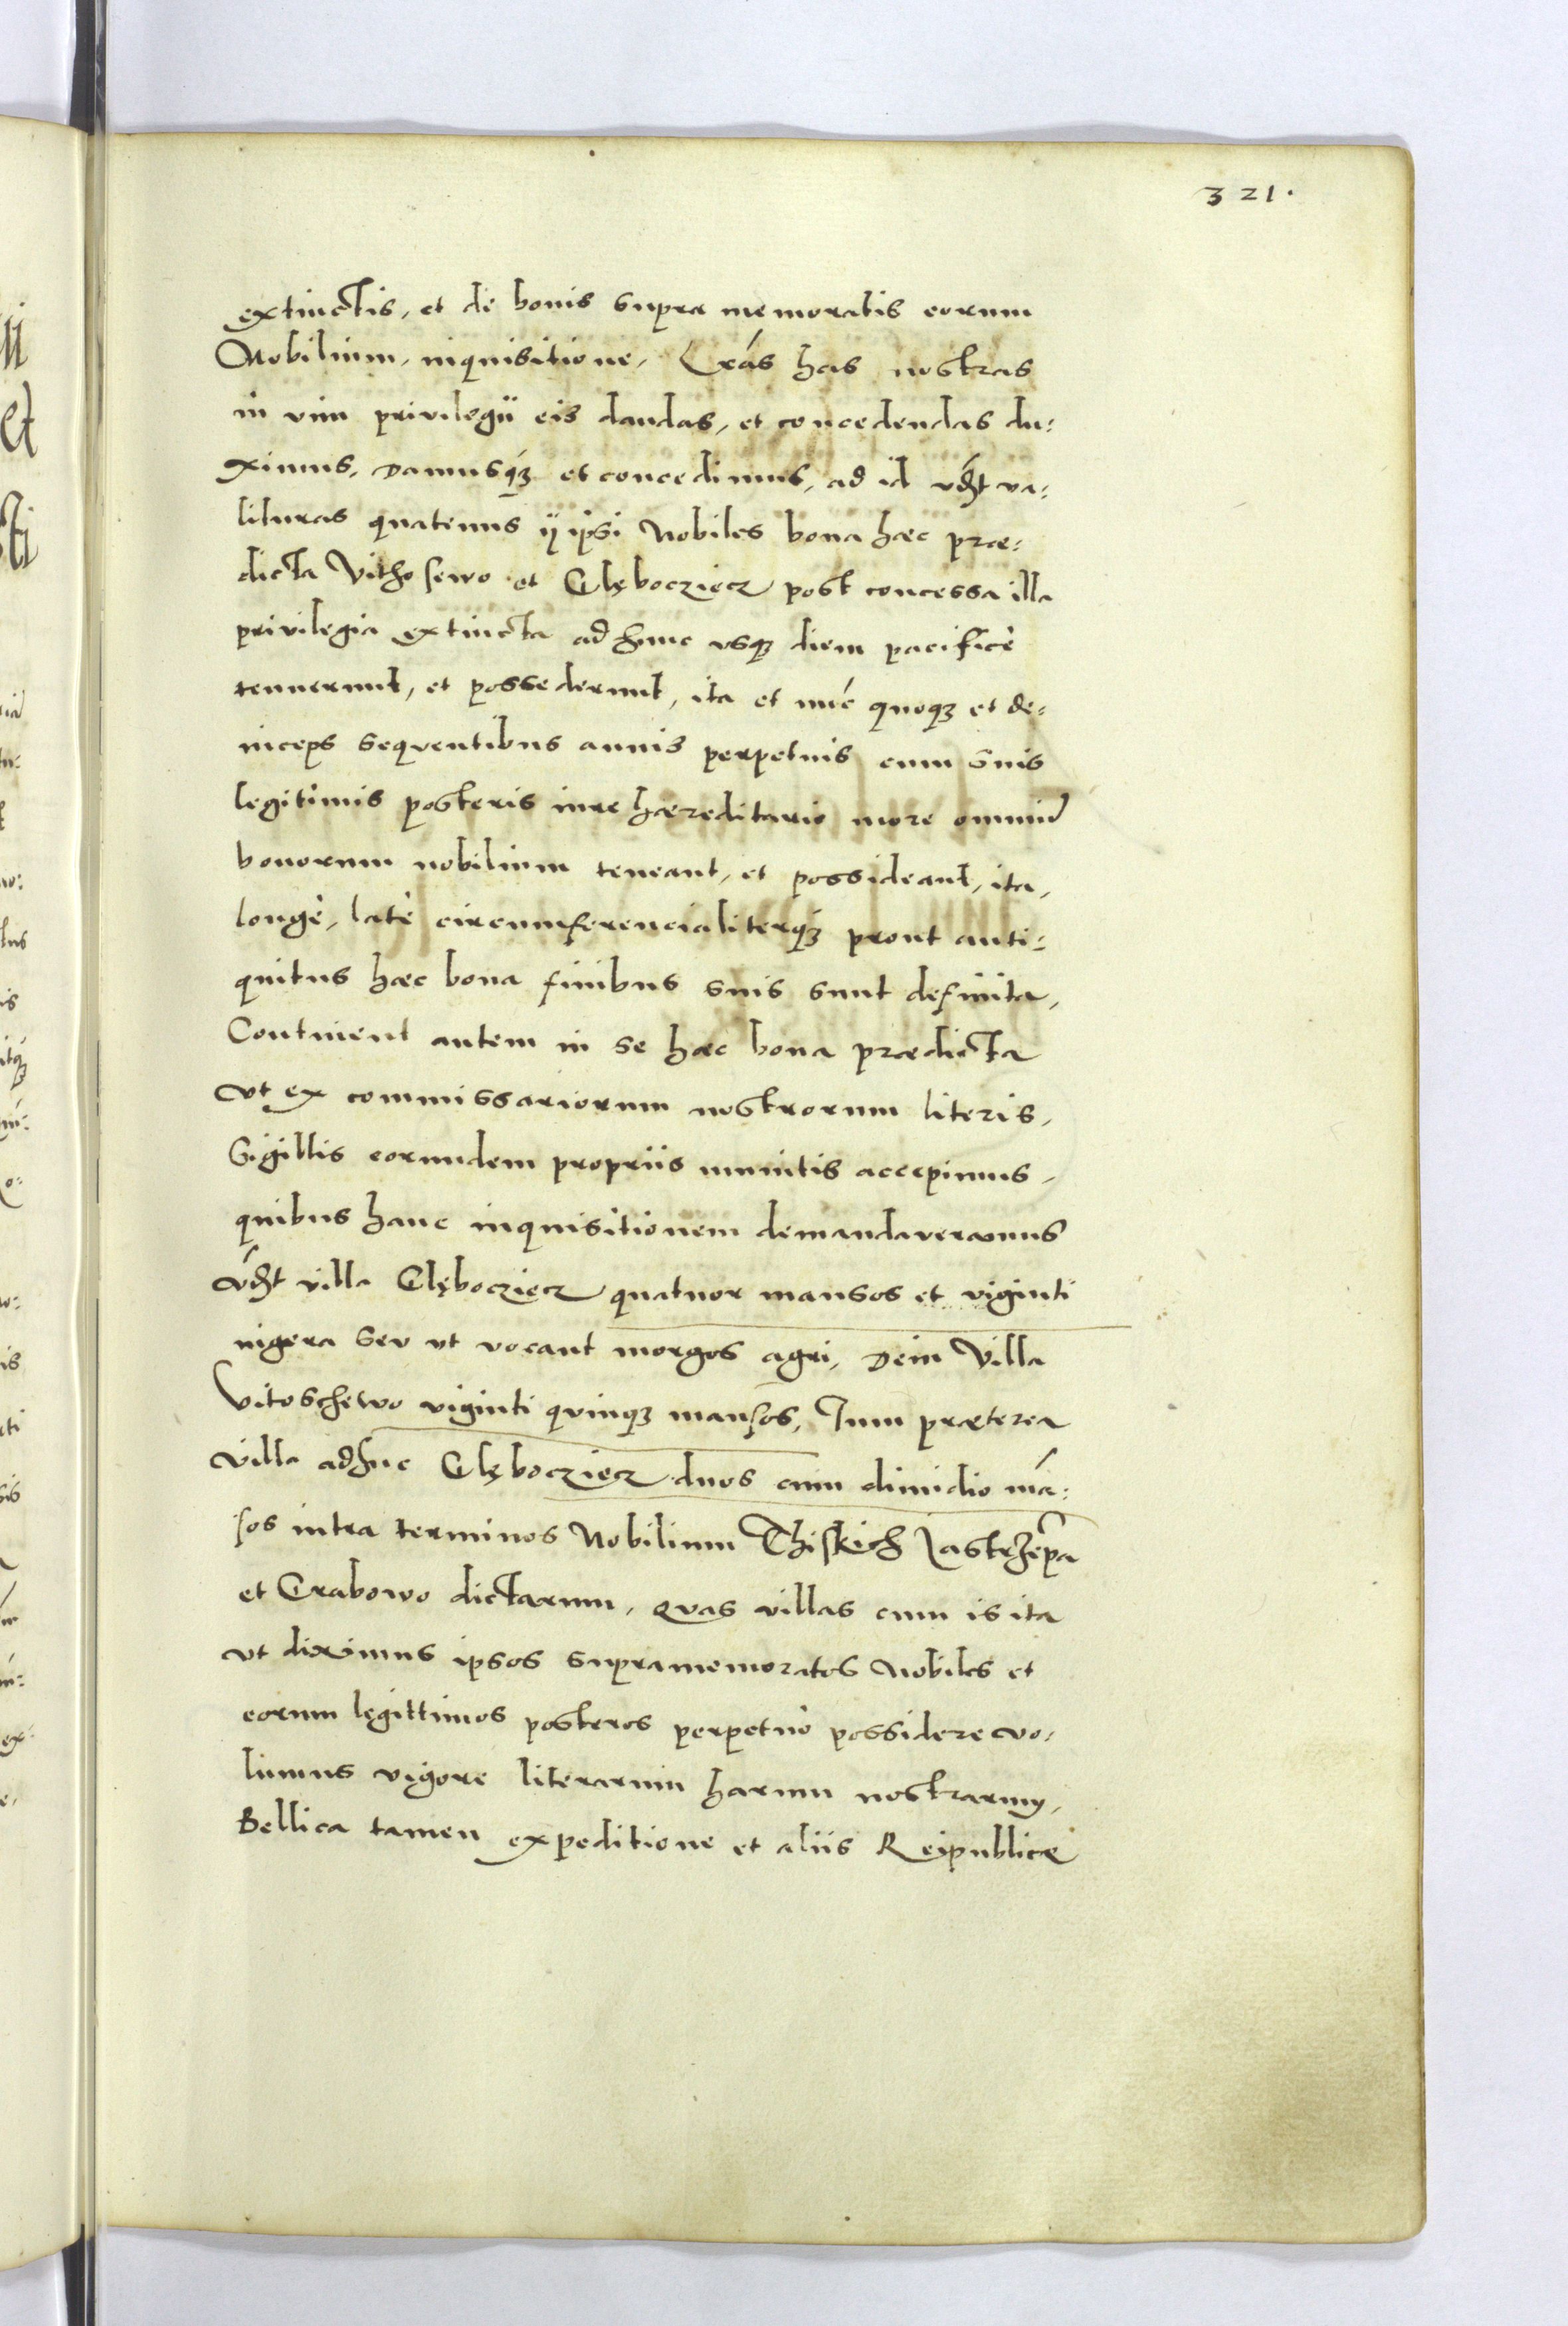 321.
extinctis, et de bonis supra memoratis eorum
Nobilium, inquisitione, Lrás has nostras
in vim privilegii eis dandas, et concedendas du:
ximus, Damusq́ꝫ et concedimus, ad id vdʒt va:
lituras quatenus ij ipsi Nobiles bona haec prae:
dicta Vithosewo et Glębocziecz post concessa illa
privilegia extincta ad hunc usqꝫ diem pacificè
tenuerunt, et possederunt, ita et nūc quoqꝫ et de:
inceps sequentibus annis perpetuis cum suis
legitimis posteris iure haereditario more omniū
bonorum nobilium teneant, et possideant, ita,
longè, latè circumferencialiterq́ꝫ prout anti:
quitus haec bona finibus suis sunt definita,
Continent autem in se haec bona praedicta
Ut ex commissariorum nostrorum literis,
Sigillis eorundem propriis munitis accepimus,
quibus hanc inquisitionem demandaveramus
vdʒt villa Glębocziecz quatuor mansos et viginti
iugera seu ut vocant morgos agri, Dein Villa
Vitoschewo viginti quinqꝫ mansos, Tum praeterea
villa adhuc Glębocziecz duos cum dimidio mā:
sos intra terminos Nobilium Thiskich Jastrzępa
et Grabowo dictarum, Quas villas cum is ita
ut diximus ipsos supramemoratos Nobiles et
eorum legittimos posteros perpetuò possidere vo:
lumus vigore literarum harum nostrarum,
Bellica tamen expeditione et aliis Reipublicae